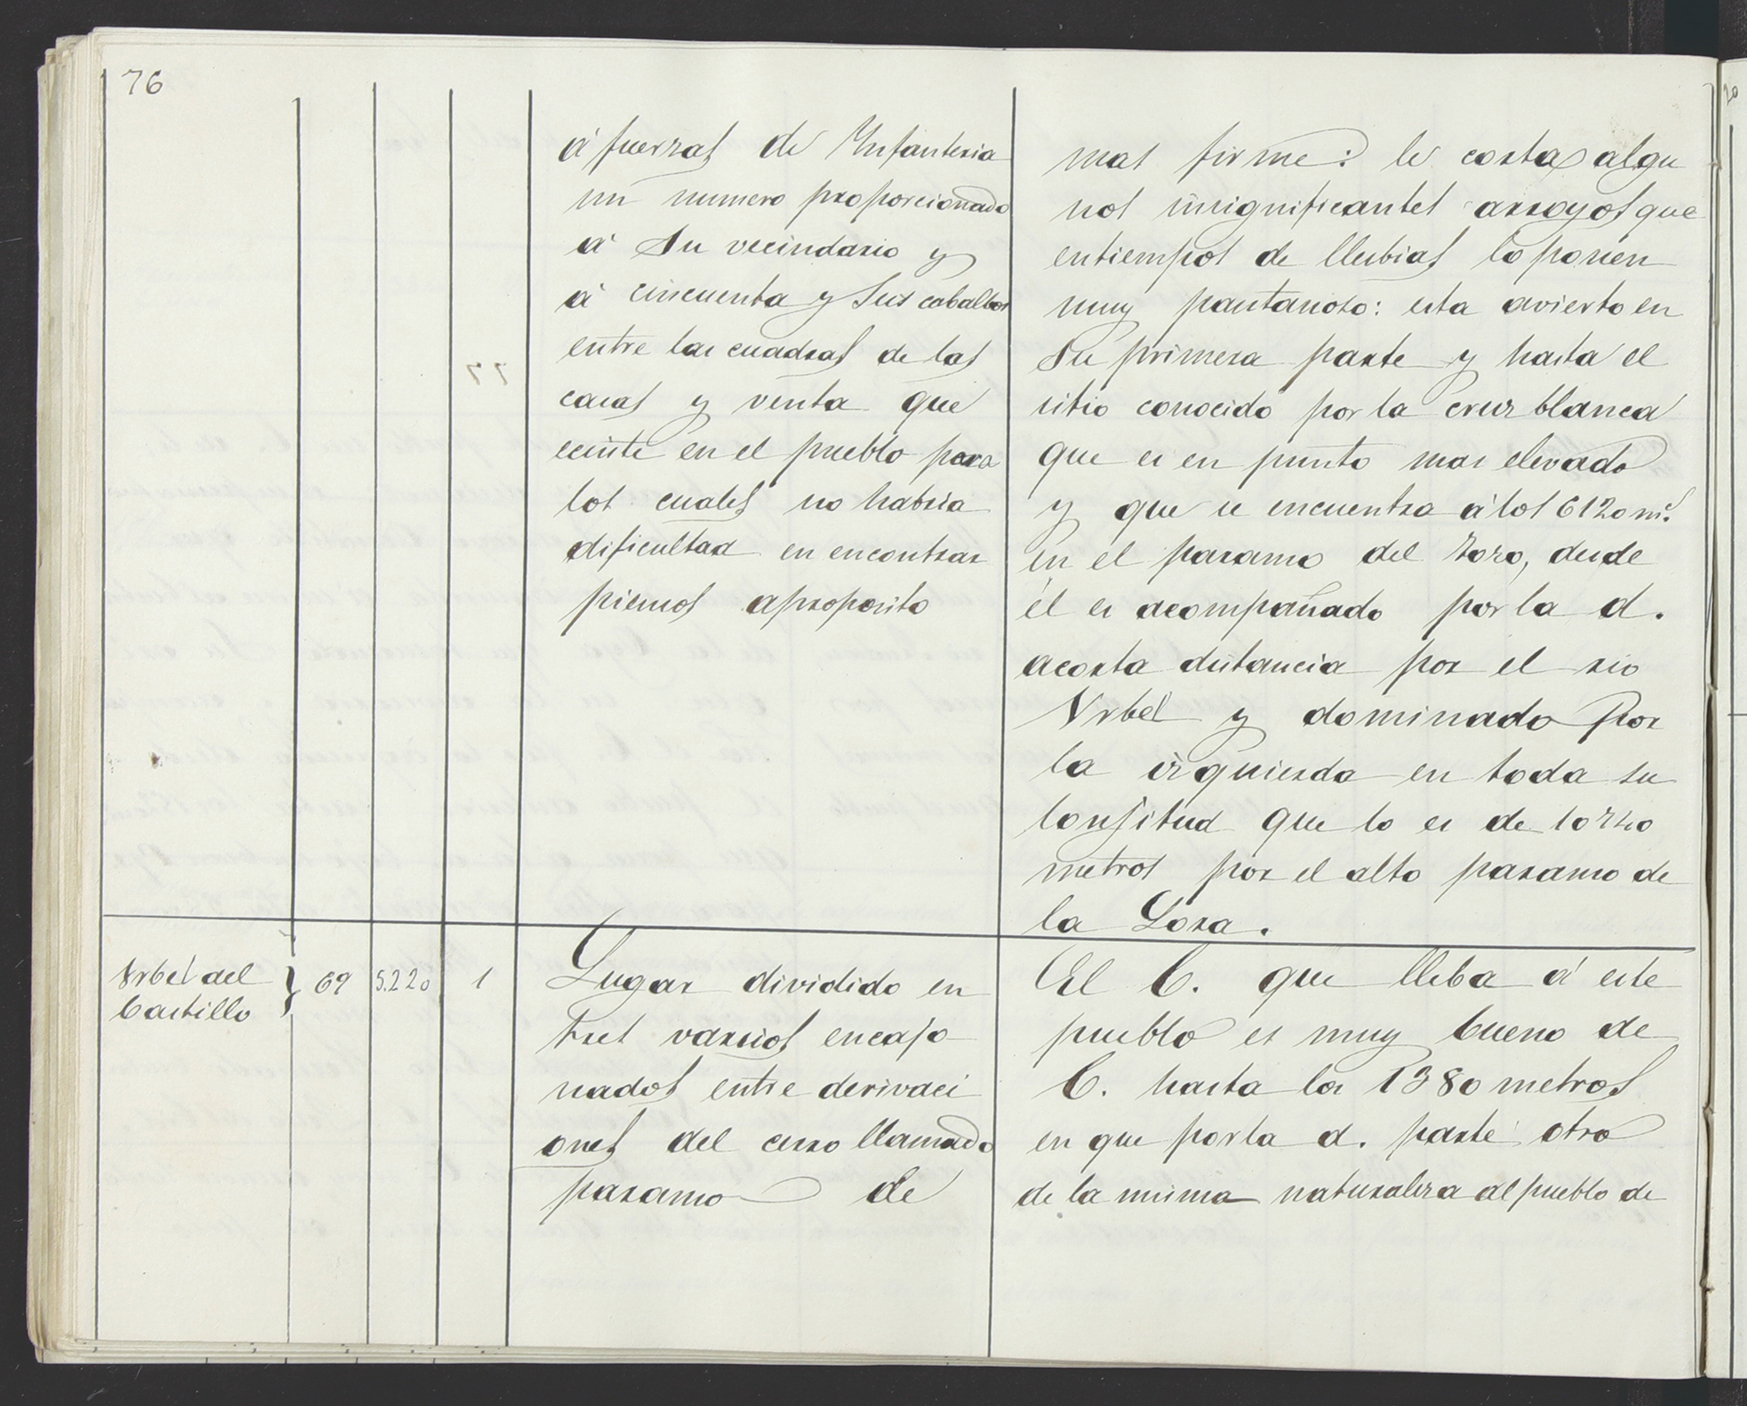 76
á fuerzas de Infanteria
un numero proporcionado
á su vecindario y
á cincuenta y seis caballos
entre las cuadras de las
casas y venta que
ecsiste en el pueblo para
los cuales no habria
dificultad en encontrar
piensos aproposito
mas firme: le corta algu
nos insignificantes arroyos que
entiempos de llubias lo ponen
muy pantanoso: esta avierto en
su primera parte y hasta el
sitio conocido por la cruz blanca
que es en punto mas elevado
y que se encuentra á los 6120 ms.
en el paramo del Tozo, desde
él es acompañado por la d.
acorta distancia por el rio
Vrbel y dominado por
la izquierda en toda su
lonjitud que lo es de 10720
metros por el alto paramo de
la Lora.
Vrbel del
Castillo } 69 5.220 1
Lugar dividido en
tres varrios encajo
nados entre derivaci
ones del cerro llamado
paramo de
El C. que lleba á este
pueblo es muy bueno de
C. hasta los 1380 metros
en que por la d. parte otro
de la misma naturaleza al pueblo de